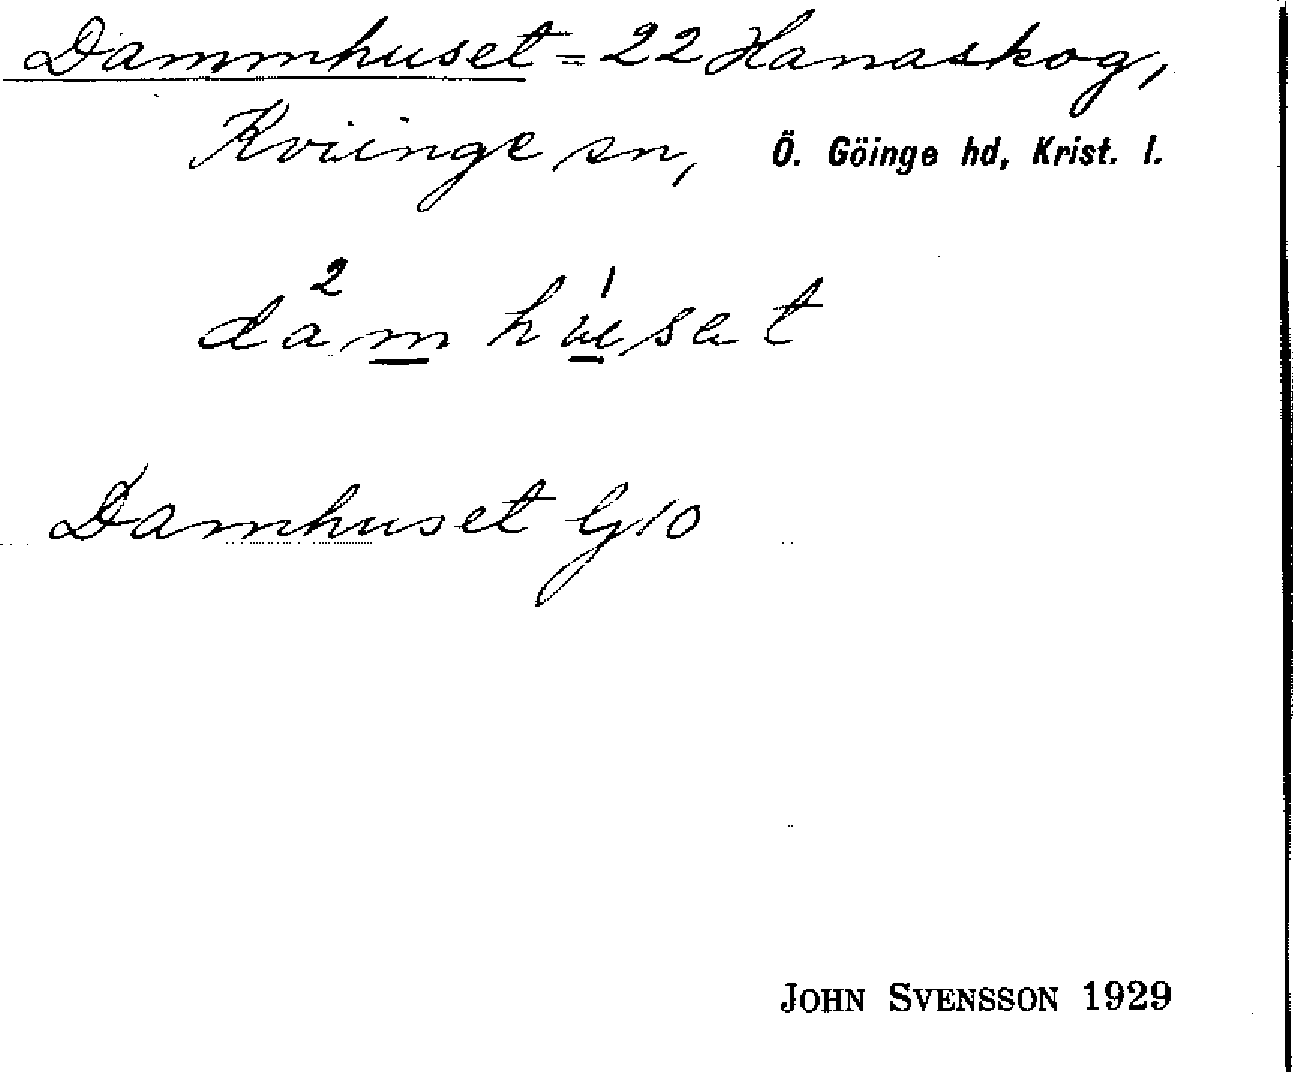 Dammhuset = 22 Hanaskog,
Kviinge sn, Ö. Göinge hd, Krist. l.
da²m hu̍sət
Damhuset Gj 10
JOHN SVENSSON 1929